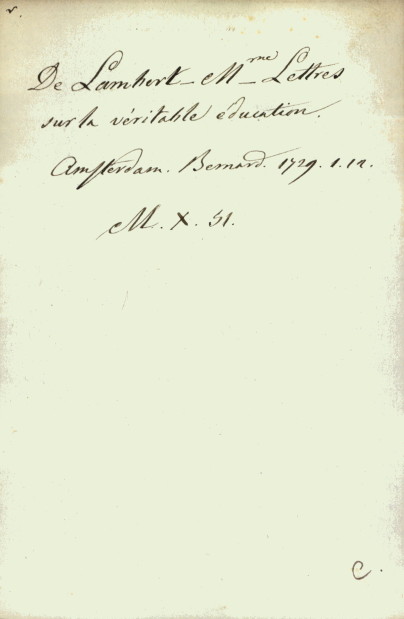 v.
De Lambert_ M.me_ Lettres
sur la véritable éducation.
Amsterdam. Bernard. 1729. 1. 12.
M. X. 51.
C.